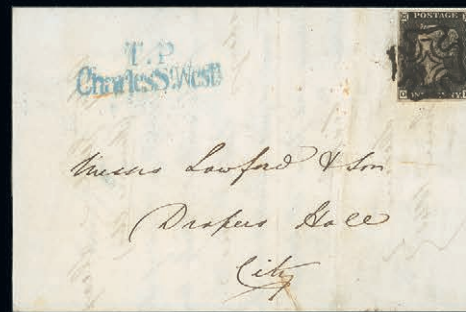 POSTAGE
T.P
CharlesSt.West
Messrs Lawford & Son
Drapers Hall
City